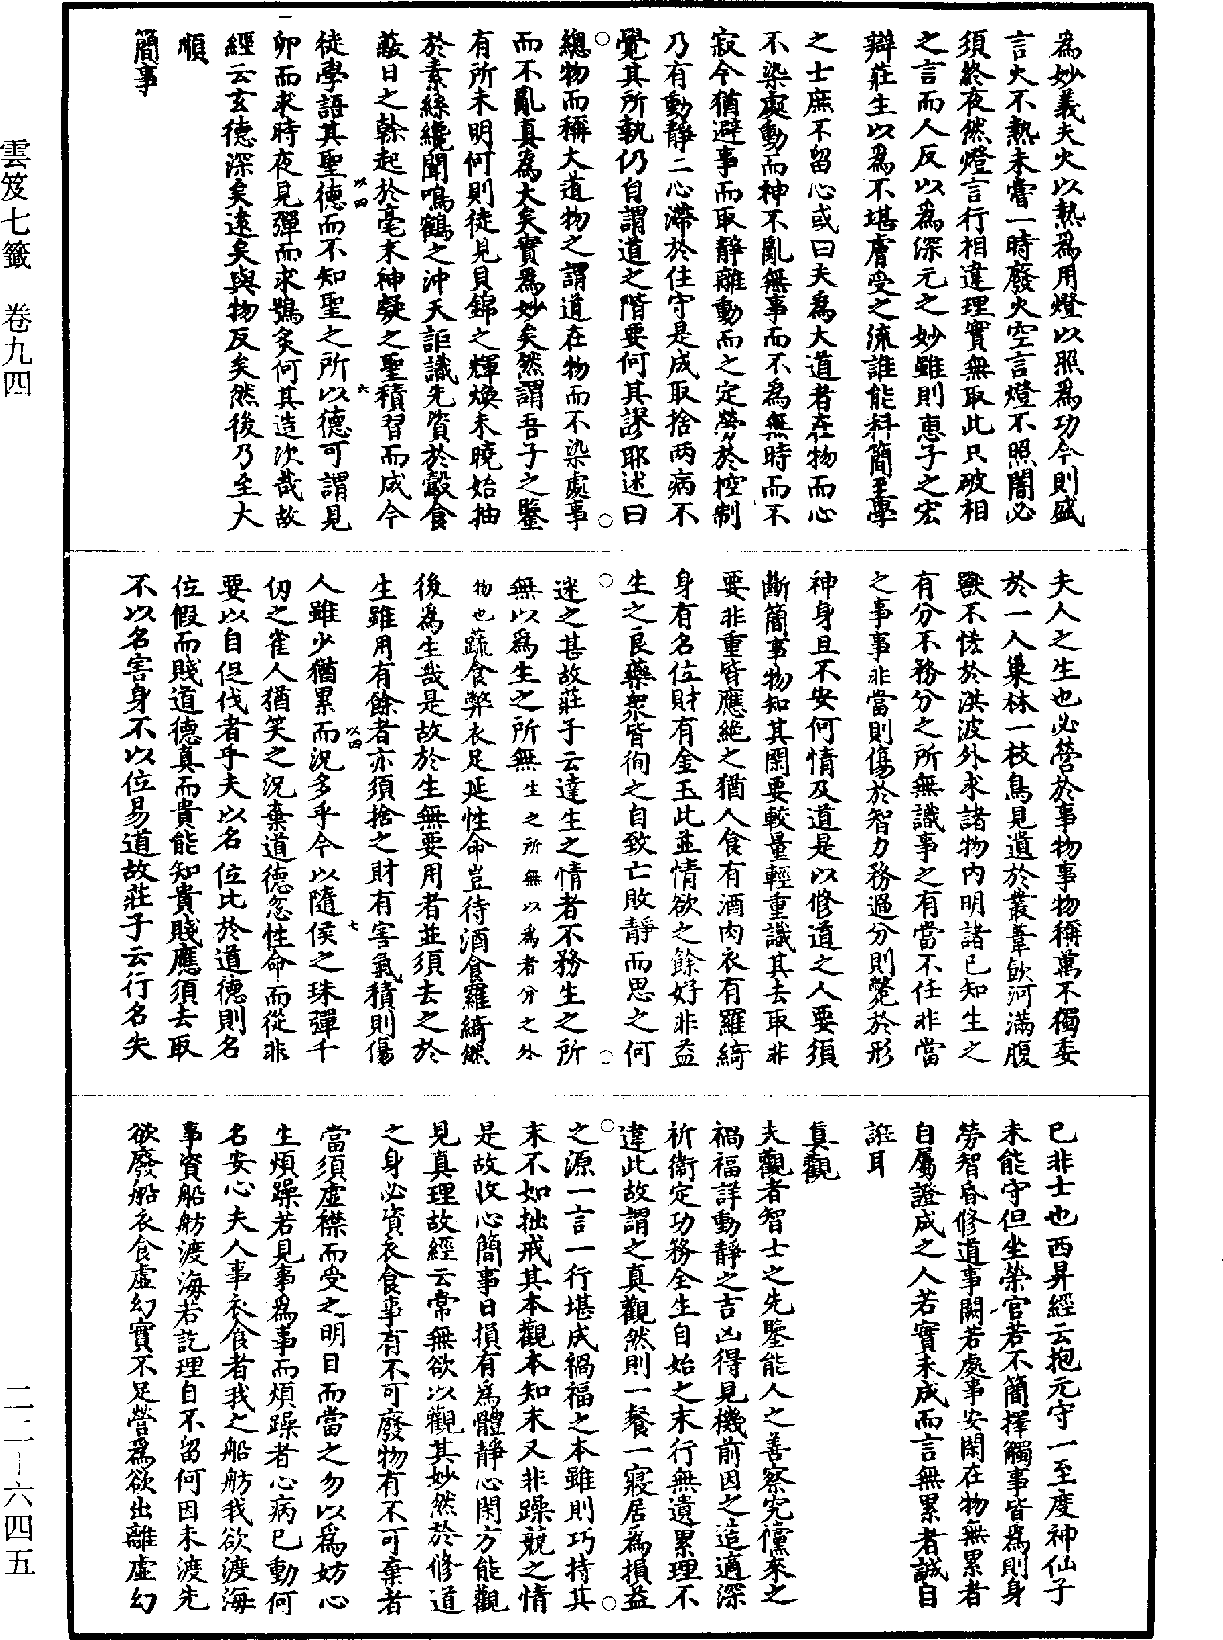 雲笈七籤　卷九四
二二—六四五
為妙義夫火以熱為用燈以照為功今則盛
言火不熱未嘗一時廢火空言燈不照闇必
須終夜然燈言行相違理實無取此只破相
之言而人反以為深元之妙雖則惠子之宏
辯莊生以為不堪膚受之流誰能科簡至學
之士庶不留心或曰夫為大道者在物而心
不染處動而神不亂無事而不為無時而不
寂今猶避事而取靜離動而之定勞於控制
乃有動靜二心滯於住守是成取捨两病不
覺其所執仍自謂道之階要何其謬耶述曰
總物而稱大道物之謂道在物而不染處事
而不亂真為大矣實為妙矣然謂吾子之鑒
有所未明何則徒見貝錦之輝煥未曉始抽
於素絲纔聞鳴鶴之沖天詎識先資於㲉食
蔽日之榦起於毫末神凝之聖積習而成今
徒學語其聖德而不知聖之所以德可謂見
卵而求時夜見彈而求鴞炙何其造次哉故
經云玄德深矣遠矣與物反矣然後乃至大
順
簡事
以四
六
夫人之生也必營於事物事物稱萬不獨委
於一人巢林一枝鳥見遺於叢葦飲河滿腹
獸不恡於洪波外求諸物內明諸已知生之
有分不務分之所無識事之有當不任非當
之事事非當則傷於智力務過分則斃於形
神身且不安何情及道是以修道之人要須
斷簡事物知其閑要較量輕重識其去取非
要非重皆應絕之猶人食有酒肉衣有羅綺
身有名位財有金玉此並情欲之餘好非益
生之良藥衆皆徇之自致亡敗靜而思之何
迷之甚故莊子云達生之情者不務生之所
無以為生之所無生之所無以為者分之外
物也蔬食弊衣足延性命豈待酒食羅綺然
後為生哉是故於生無要用者並須去之於
生雖用有餘者亦須捨之財有害氣積則傷
人雖少猶累而況多乎今以隨侯之珠彈千
仞之雀人猶笑之況棄道德忽性命而從非
要以自促伐者乎夫以名位比於道德則名
位假而賤道德真而貴能知貴賤應須去取
不以名害身不以位易道故莊子云行名失
以四
七
已非士也西昇經云抱元守一至度神仙子
未能守但坐榮官若不簡擇觸事皆為則身
勞智昏修道事闕若處事安閑在物無累者
自屬證成之人若實未成而言無累者誠自
誑耳
真觀
夫觀者智士之先鑒能人之善察究儻來之
禍福詳動靜之吉凶得見機前因之造適深
祈衛定功務全生自始之末行無遺累理不
違此故謂之真觀然則一餐一寢居為損益
之源一言一行堪成禍福之本雖則巧持其
末不如拙戒其本觀本知末又非躁競之情
是故收心簡事日損有為體靜心閑方能觀
見真理故經云常無欲以觀其妙然於修道
之身必資衣食事有不可廢物有不可棄者
當須虛襟而受之明目而當之勿以為妨心
生煩躁若見事為事而煩躁者心病已動何
名安心夫人事衣食者我之船舫我欲渡海
事資船舫渡海若訖理自不留何因未渡先
欲廢船衣食虛幻實不足營為欲出離虛幻